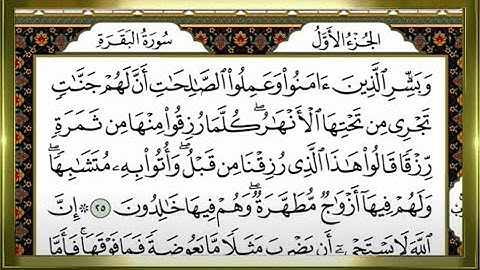 الجزء الأول
سورة البقرة
وَبَشِّرِ ٱلَّذِينَ ءَامَنُوا۟ وَعَمِلُوا۟ ٱلصَّـٰلِحَـٰتِ أَنَّ لَهُمْ جَنَّـٰتٍ
تَجْرِى مِن تَحْتِهَا ٱلْأَنْهَـٰرُ ۖ كُلَّمَا رُزِقُوا۟ مِنْهَا مِن ثَمَرَةٍ
رِّزْقًا قَالُوا۟ هَـٰذَا ٱلَّذِى رُزِقْنَا مِن قَبْلُ ۖ وَأُتُوا۟ بِهِۦ مُتَشَـٰبِهًا ۖ
وَلَهُمْ فِيهَآ أَزْوَٰجٌ مُّطَهَّرَةٌ ۖ وَهُمْ فِيهَا خَـٰلِدُونَ ٢٥ ۞ إِنَّ
ٱللَّهَ لَا يَسْتَحْىِۦٓ أَن يَضْرِبَ مَثَلًا مَّا بَعُوضَةً فَمَا فَوْقَهَا ۚ فَأَمَّا